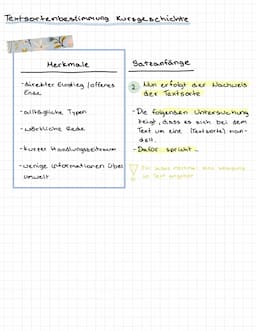 Textsortenbestimmung Kurzgeschichte
Merkmale
-direkter Einstieg /offenes
Ende
-alltägliche Typen
-wörtliche Rede
-kurzer Handlungszeitraum
-wenige Informationen über
Umwelt
Satzanfänge
2. Nun erfolgt der Nachweis
der Textsorte
-Die folgenden Untersuchung
zeigt, dass es sich bei dem
Text um eine (Textsorte) han-
delt.
-Dafür spricht...
Für jedes Merkmal eine
im Text angeben